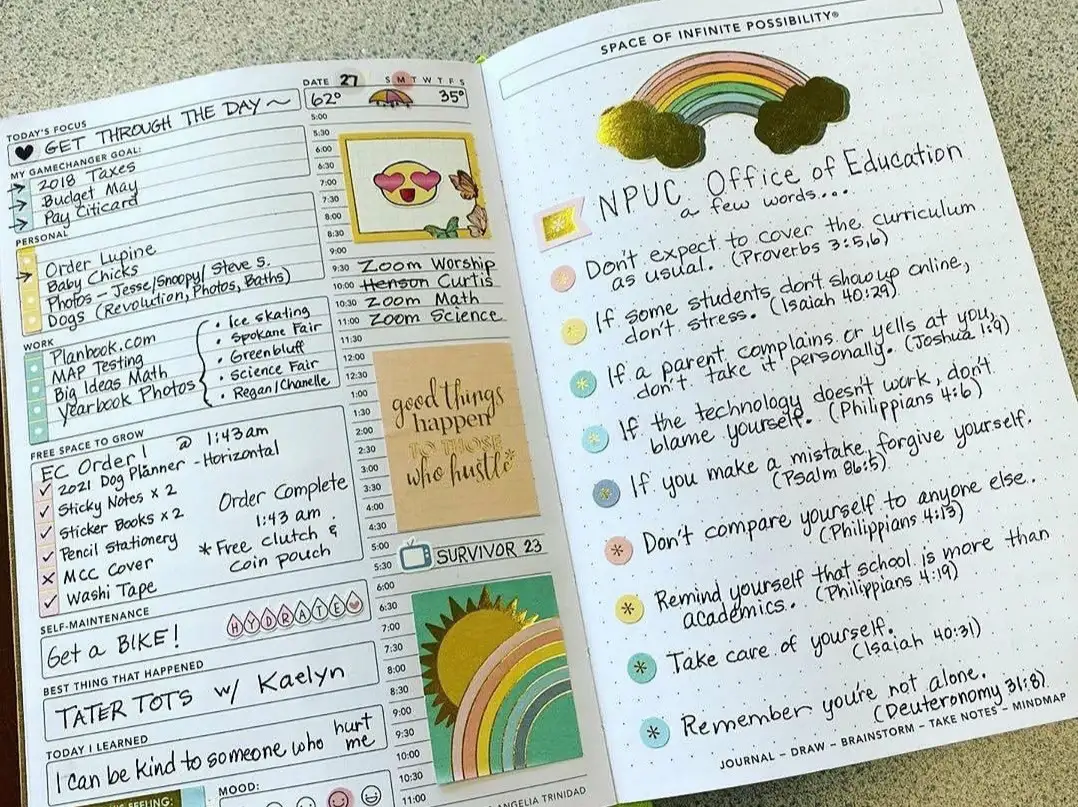 DATE 27 S M T W T F S
62° 35°
TODAY'S FOCUS
GET THROUGH THE DAY ~
MY GAMECHANGER GOAL:
→ 2018 Taxes
→ Budget May
→ Pay Citicard
PERSONAL
Order Lupine
→ Baby Chicks
Photos - Jesse/Snoopy/Steve S.
Dogs (Revolution, Photos, Baths)
WORK
Planbook.com
MAP Testing
Big Ideas Math
Yearbook Photos
• Ice skating
• Spokane Fair
• Greenbluff
• Science Fair
• Regan/Chanelle
FREE SPACE TO GROW
EC Order! @ 1:43 am
✓ 2021 Dog Planner - Horizontal
✓ Sticky Notes x 2
✓ Sticker Books x 2
✓ Pencil Stationery
x MCC Cover
✓ Washi Tape
Order Complete
1:43 am
* Free clutch &
coin pouch
SELF-MAINTENANCE
HYDRATE
Get a BIKE!
BEST THING THAT HAPPENED
TATER TOTS w/ Kaelyn
TODAY I LEARNED
I can be kind to someone who hurt me
FEELING:
MOOD:
5:00
5:30
6:00
6:30
7:00
7:30
8:00
8:30
9:00
9:30 Zoom Worship
10:00 Henson Curtis
10:30 Zoom Math
11:00 Zoom Science
11:30
12:00
12:30
1:00
1:30
2:00
2:30
3:00
3:30
4:00
4:30
good things
happen
TO THOSE
who hustle*
5:00
5:30 SURVIVOR 23
6:00
6:30
7:00
7:30
8:00
8:30
9:00
9:30
10:00
10:30
11:00
ANGELIA TRINIDAD
SPACE OF INFINITE POSSIBILITY®
NPUC Office of Education
a few words...
* Don't expect to cover the curriculum
as usual. (Proverbs 3:5,6)
* If some students don't show up online,
don't stress. (Isaiah 40:29)
* If a parent complains or yells at you,
don't take it personally. (Joshua 1:9)
* If the technology doesn't work, don't
blame yourself. (Philippians 4:6)
* If you make a mistake, forgive yourself.
(Psalm 86:5)
* Don't compare yourself to anyone else..
(Philippians 4:13)
* Remind yourself that school is more than
academics. (Philippians 4:19)
* Take care of yourself.
(Isaiah 40:31)
* Remember you're not alone.
(Deuteronomy 31:8)
JOURNAL – DRAW – BRAINSTORM – TAKE NOTES – MINDMAP